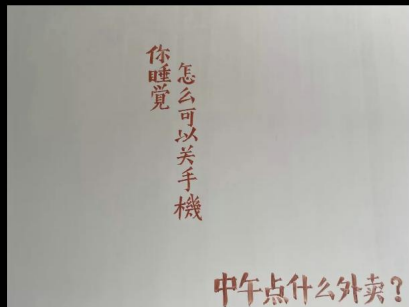 你睡覚
怎么可以关手機
中午点什么外卖？